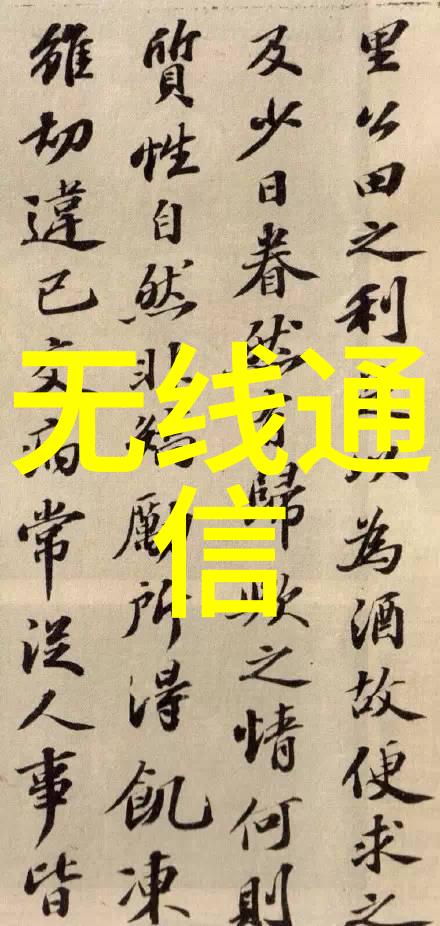 里公田之利以為酒故便求之
及少日眷然有歸欤之情何則
質性自然非矯勵所得飢凍
雖切違已交病常從人事皆
无线通
信